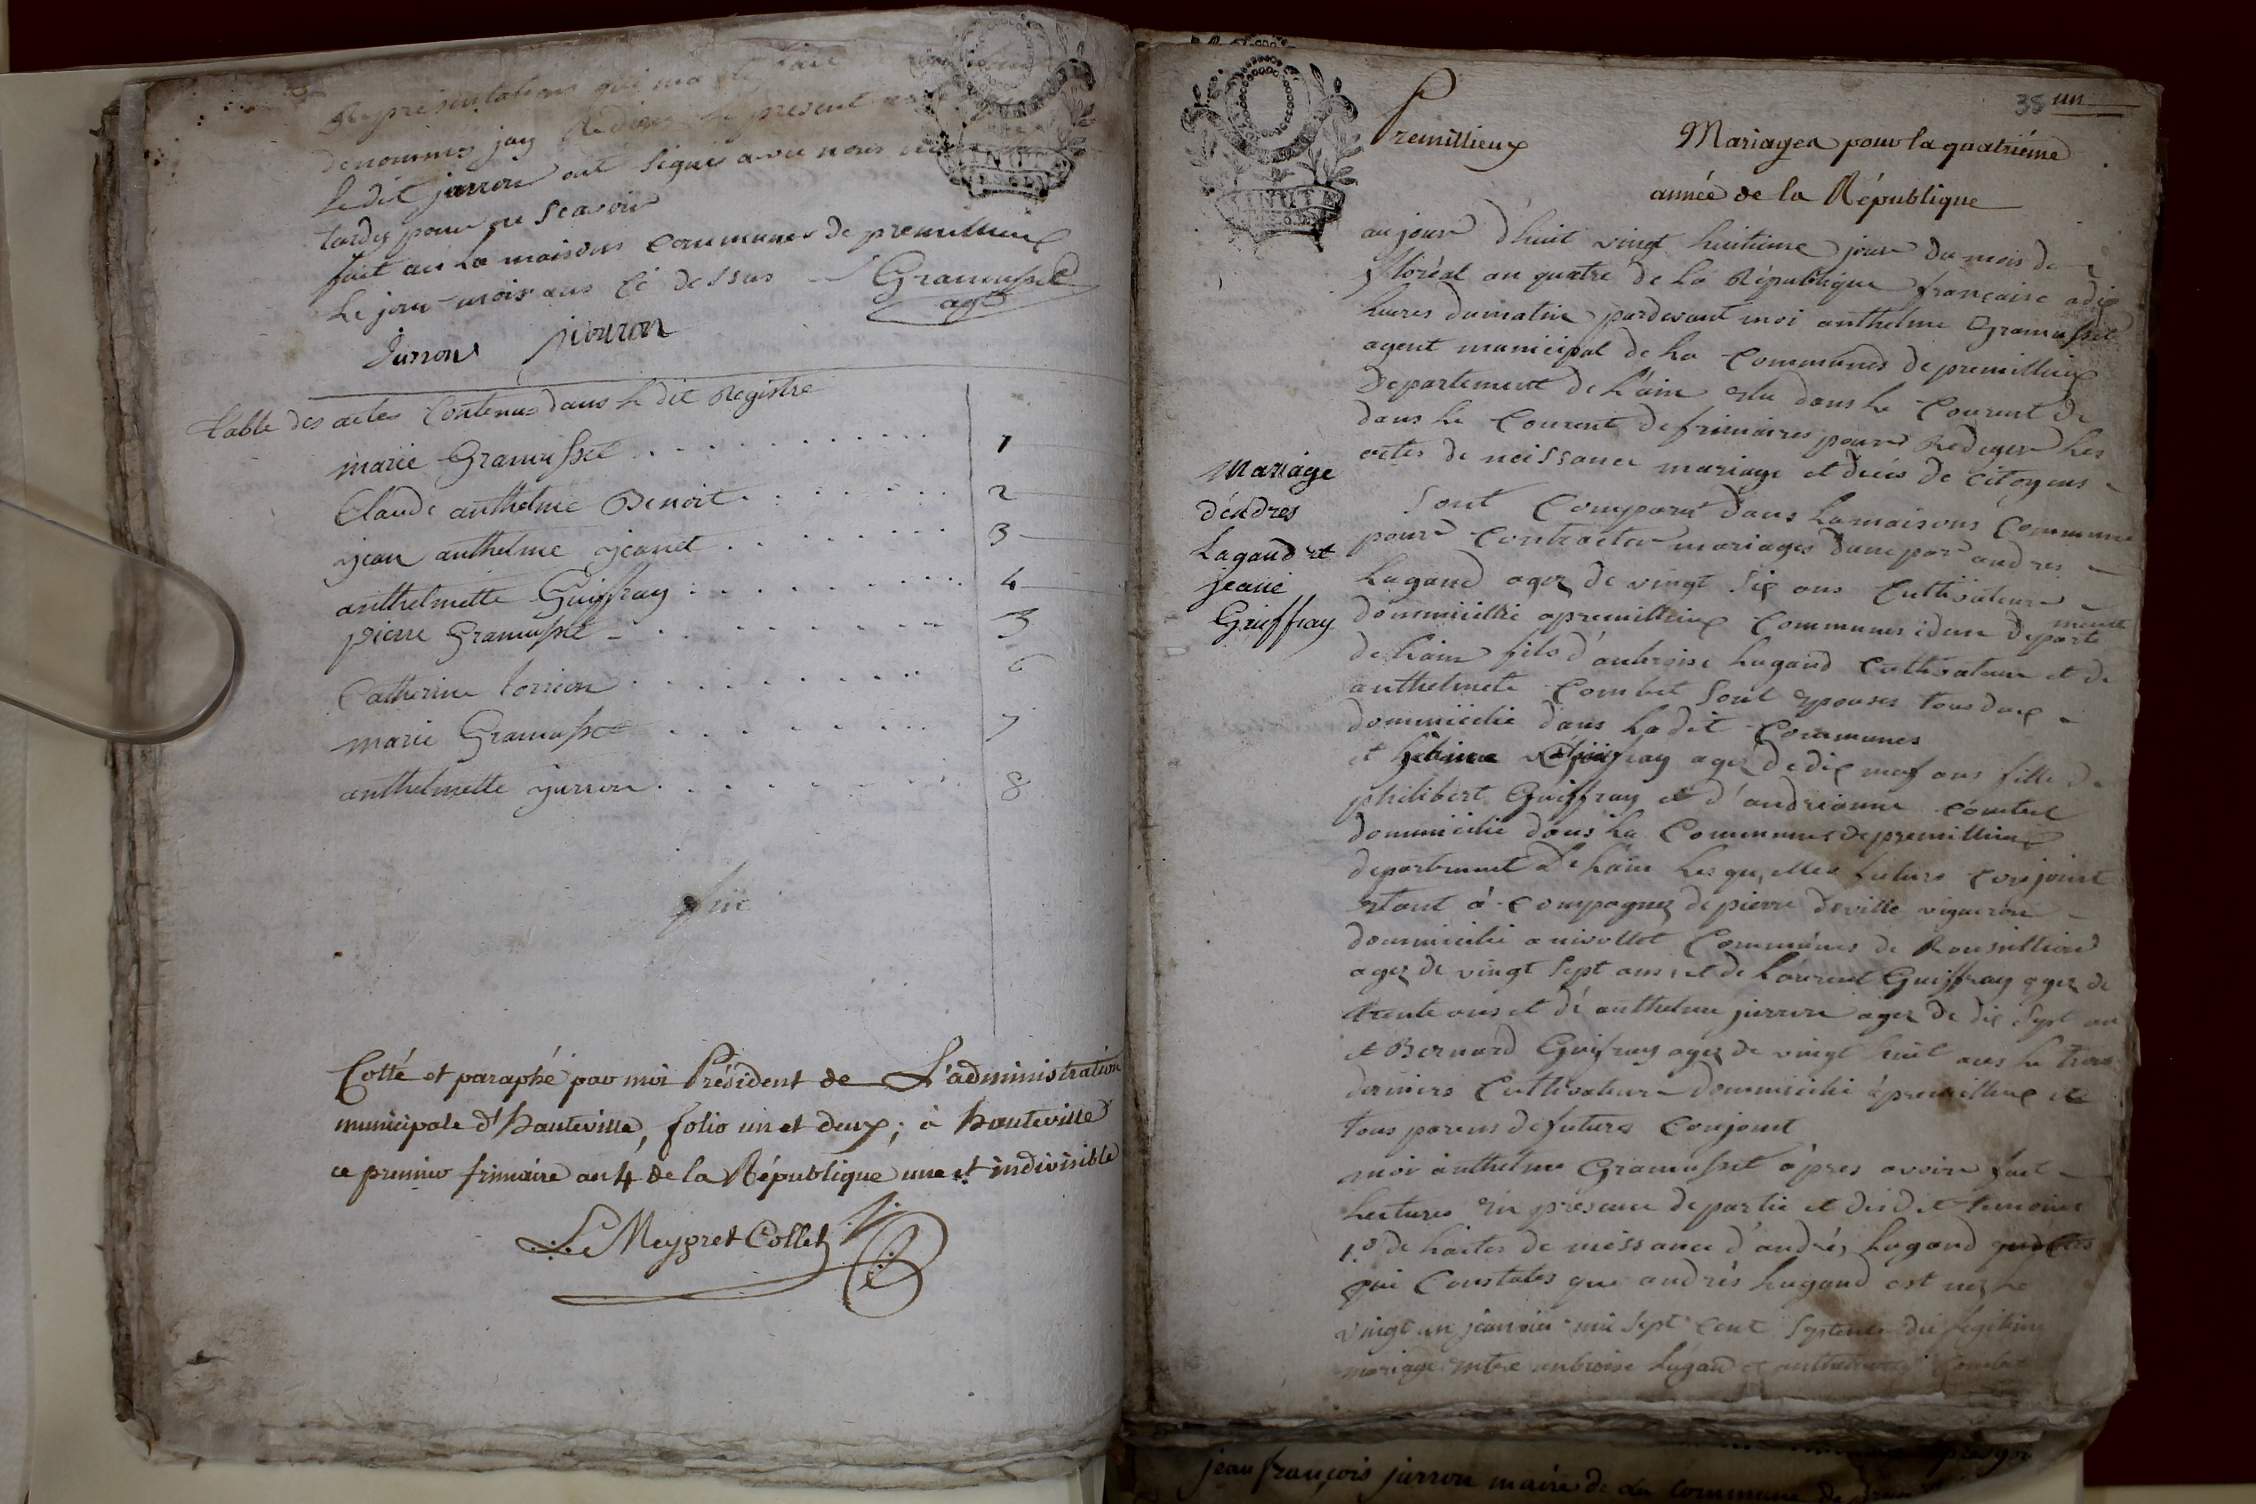 Représentations qui ma été faite
denommés jay Rediger le présent acte
Le dit jurron ont Signés avec nous
tardy pour ne Scavoir
fait an La maisons Communes de premillieux
Le jour mois ans Cé dessus Gramusset
agt
Jurron jurron
Table des actes Contenus dans Le dit Registre
marie Gramusset 1
Claude anthelme Benoit 2
jean anthelme jeanet 3
anthelmette Guiffray 4
pierre Gramusset 5
Catherine torrion 6
marie Gramusset 7
anthelmette jurron 8
fin
Cotté et paraphé par moi Président de L'administration
municipale d'hauteville, folio un et deux; à hauteville
ce premier frimaire an 4 de la République une et indivisible
Le Meygret Collet
MINUTE
38 un
Premillieux
Mariages pour la quatriéme
année de la République
MINUTE
aujour d'huit vingt huitieme jour du mois de
floréal an quatre de La République française a dix
heures du matin pardevant moi anthelme Gramusset
agent municipal de La Communes de premillieux
Departement de L'ain eslu dans Le Courent de
dans Le Courent de frimaires pour Rediger Les
actes de naissance mariage et décés de citoyens
Sont Comparut dans Lamaisons Commune
pour Contracter mariages dune par andres
Lugand agez de vingt Six ans Cultivateur
dommicillié a premillieux Communes idem Departe
ment
de Lain fils d'anbroise Lugand Cultivateur et de
anthelmete Combet Sont epouses tous deux
dommicilié dans Ladit Communes
et Guiffray agez de dix neuf ans fille de
philibert Guiffray et d'andrianne Combet
dommicilié dans La Communes de premillieux
departement de Lain Lesquelles futurs Conjoint
etant à Compagnez de pierre deville vigneron
dommicilié a nivollet Communes de Rousillion
agez de vingt Sept ans, et de Laurent Guiffray agez de
trente ans et dé anthelme jurron agez de dix Sept an
et Bernard Guifray agez de vingt huit ans Le trois
derniers Cultivateur dommicilié à premillieux et
tous parens de futurs Conjoint
moi anthelme Gramusset apres avoir fait
Lectures en présance de partie et desdit temoins
1.º de Lactes de nessance d'andrés Lugand
qui Constates que andrés Lugand est nez Le
vingt un janvier mil Sept Cent Systente dix Legitime
mariage entre anbroise Lugand et anthelmette Combet
Mariage
déndres
Lagand et
jeane
Guiffray
jean françois jurron maire de La Commune de